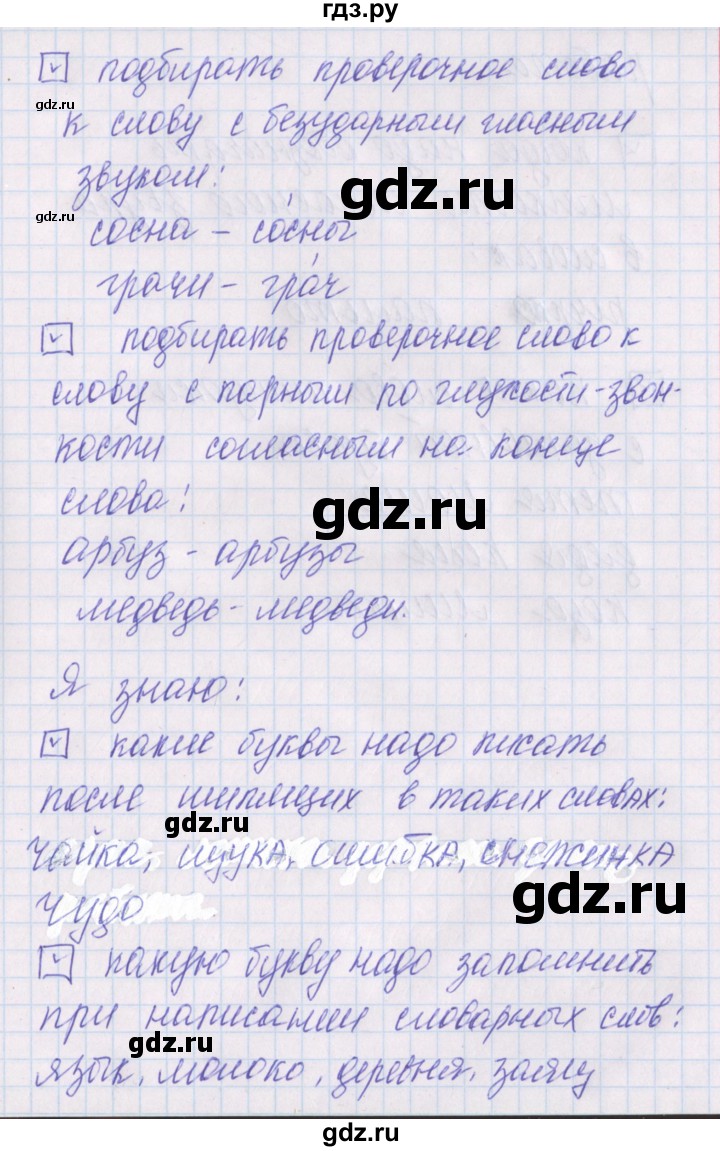 гдз.ру
☑ подбирать проверочное слово
gdz.ru
к слову с безударным гласным
gdz.ru
звуком:
gdz.ru
сосна – со́сны
грачи – гра́ч
☑ подбирать проверочное слово к
слову с парным по глухости-звон-
кости согласным на конце
слова:
gdz.ru
арбуз – арбузы
медведь – медведи.
Я знаю:
☑ какие буквы надо писать
после шипящих в таких словах:
gdz.ru
чайка, щука, ошибка, снежинка
gdz.ru
чудо
☑ какую букву надо запомнить
при написании словарных слов:
gdz.ru
язык, молоко, деревня, заяц
gdz.ru